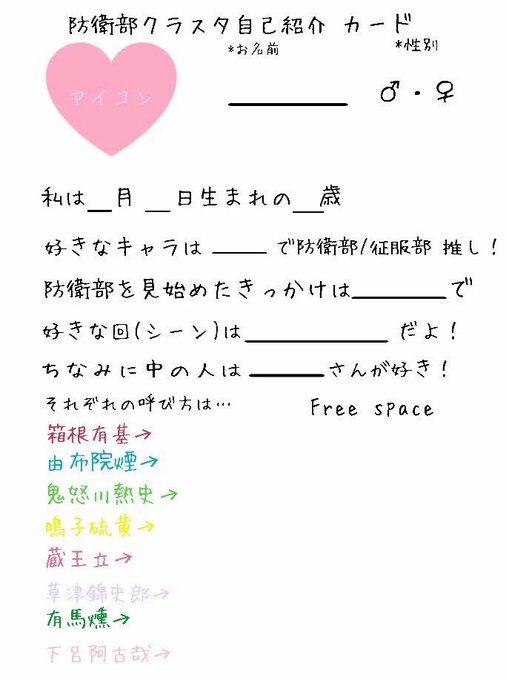 防衛部クラスタ自己紹介 カード
*お名前 *性別
アイコン
♂・♀
私は__月__日生まれの__歳
好きなキャラは____で防衛部/征服部 推し!
防衛部を見始めたきっかけは______で
好きな回(シーン)は________だよ!
ちなみに中の人は____さんが好き!
それぞれの呼び方は…
Free space
箱根有基→
由布院煙→
鬼怒川熱史→
鳴子硫黄→
蔵王立→
草津錦史郎→
有馬燻→
下呂阿古哉→